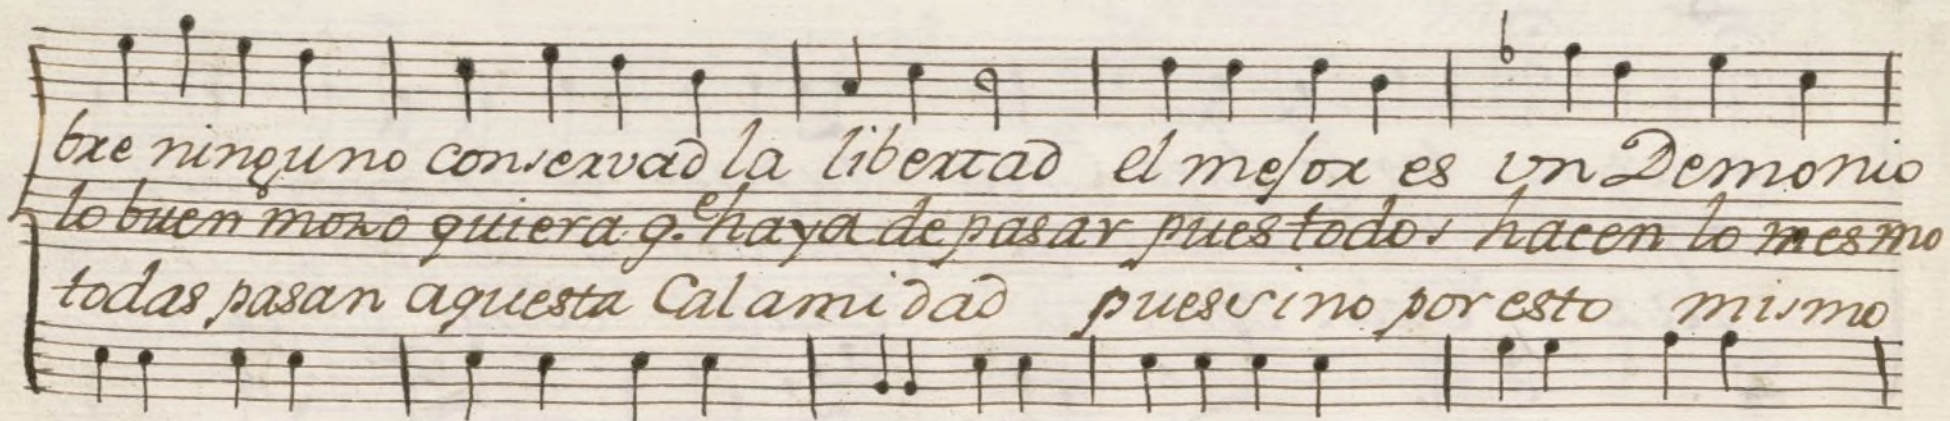 bre ninguno conservad la libertad el mejor es un Demonio
lo buen mozo quiera q.e haya de pasar pues todos hacen lo mesmo
todas pasan aquesta Calamidad pues sino por esto mismo